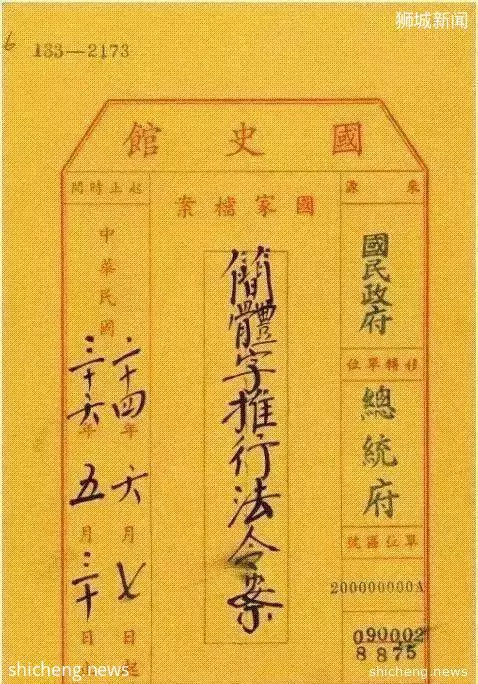 狮城新闻
6
133—2173
國史館
來源
國民政府
移轉單位
總統府
單位區號
200000000A
090002
8875
國家檔案
簡體字推行法令案
起止時間
中華民國
二十四年六月七日起
三十六年五月三十日
shicheng.news
shicheng.news